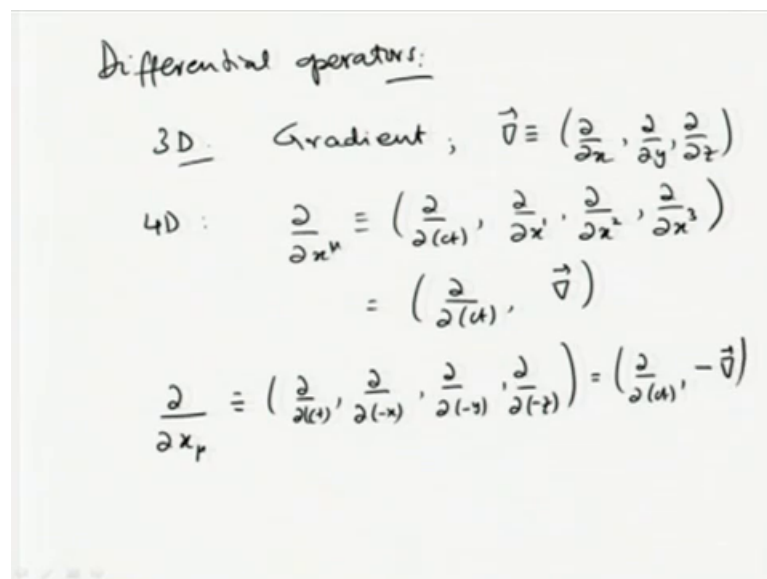 Differential operators:
3D. Gradient; ∇⃗ ≡ (∂/∂x, ∂/∂y, ∂/∂z)
4D: ∂/∂x^μ ≡ (∂/∂(ct), ∂/∂x¹, ∂/∂x², ∂/∂x³)
= (∂/∂(ct), ∇⃗)
∂/∂x_μ ≡ (∂/∂(ct), ∂/∂(-x), ∂/∂(-y), ∂/∂(-z)) = (∂/∂(ct), -∇⃗)